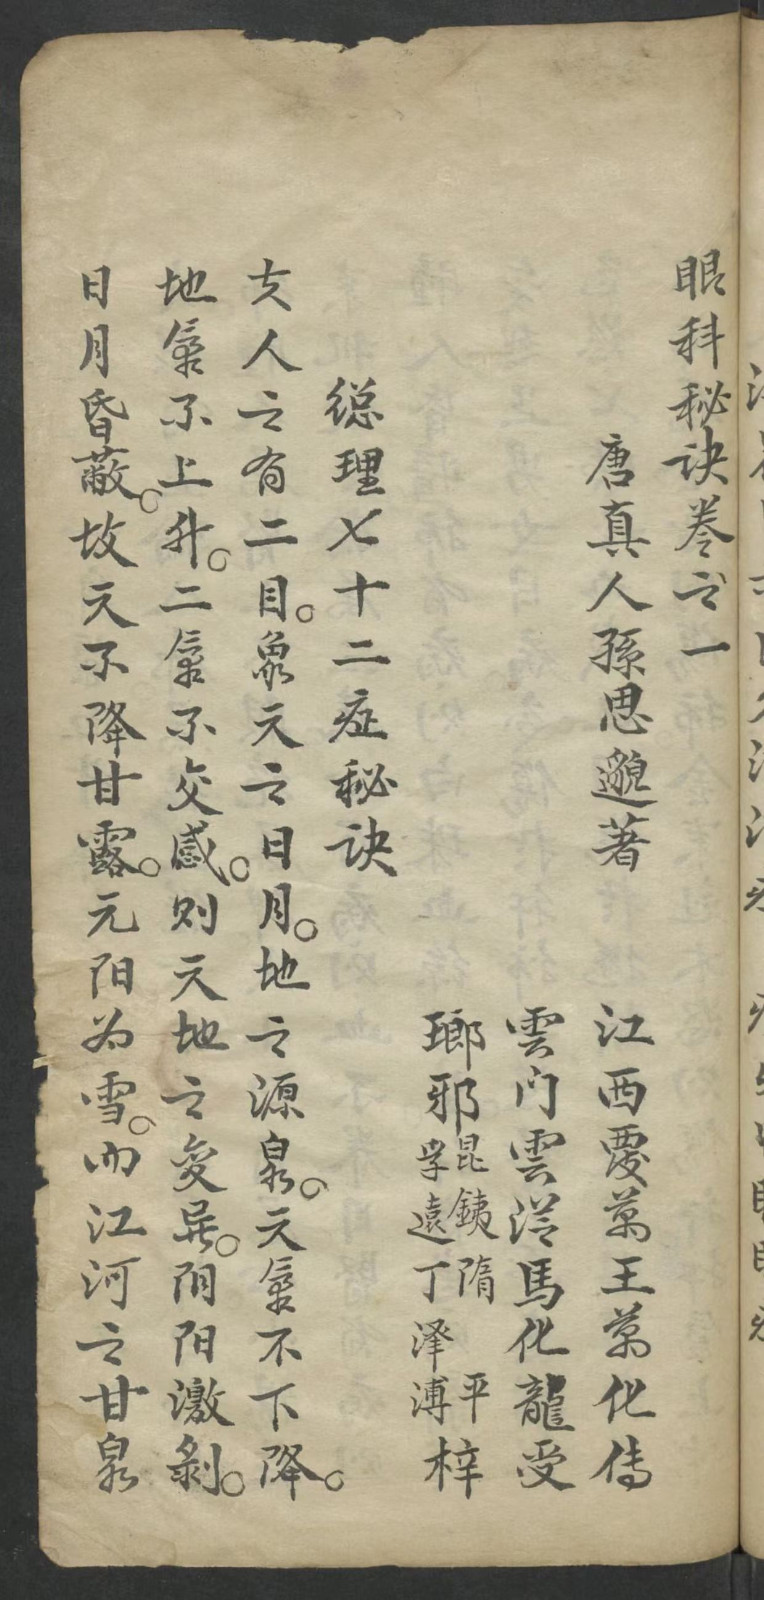 眼科秘诀卷之一
唐真人孫思邈著
江西覆萬王萬化傳
雲门雲從馬化龍受
瑯邪昆鋳隋平
孚遠丁泽溥梓
總理七十二症秘诀
夫人之有二目。象天之日月。地之源泉。天氣不下降。
地氣不上升。二氣不交感。则天地之变异。阴阳激剝。
日月昏蔽。故天不降甘露。元阳为雪。而江河之甘泉